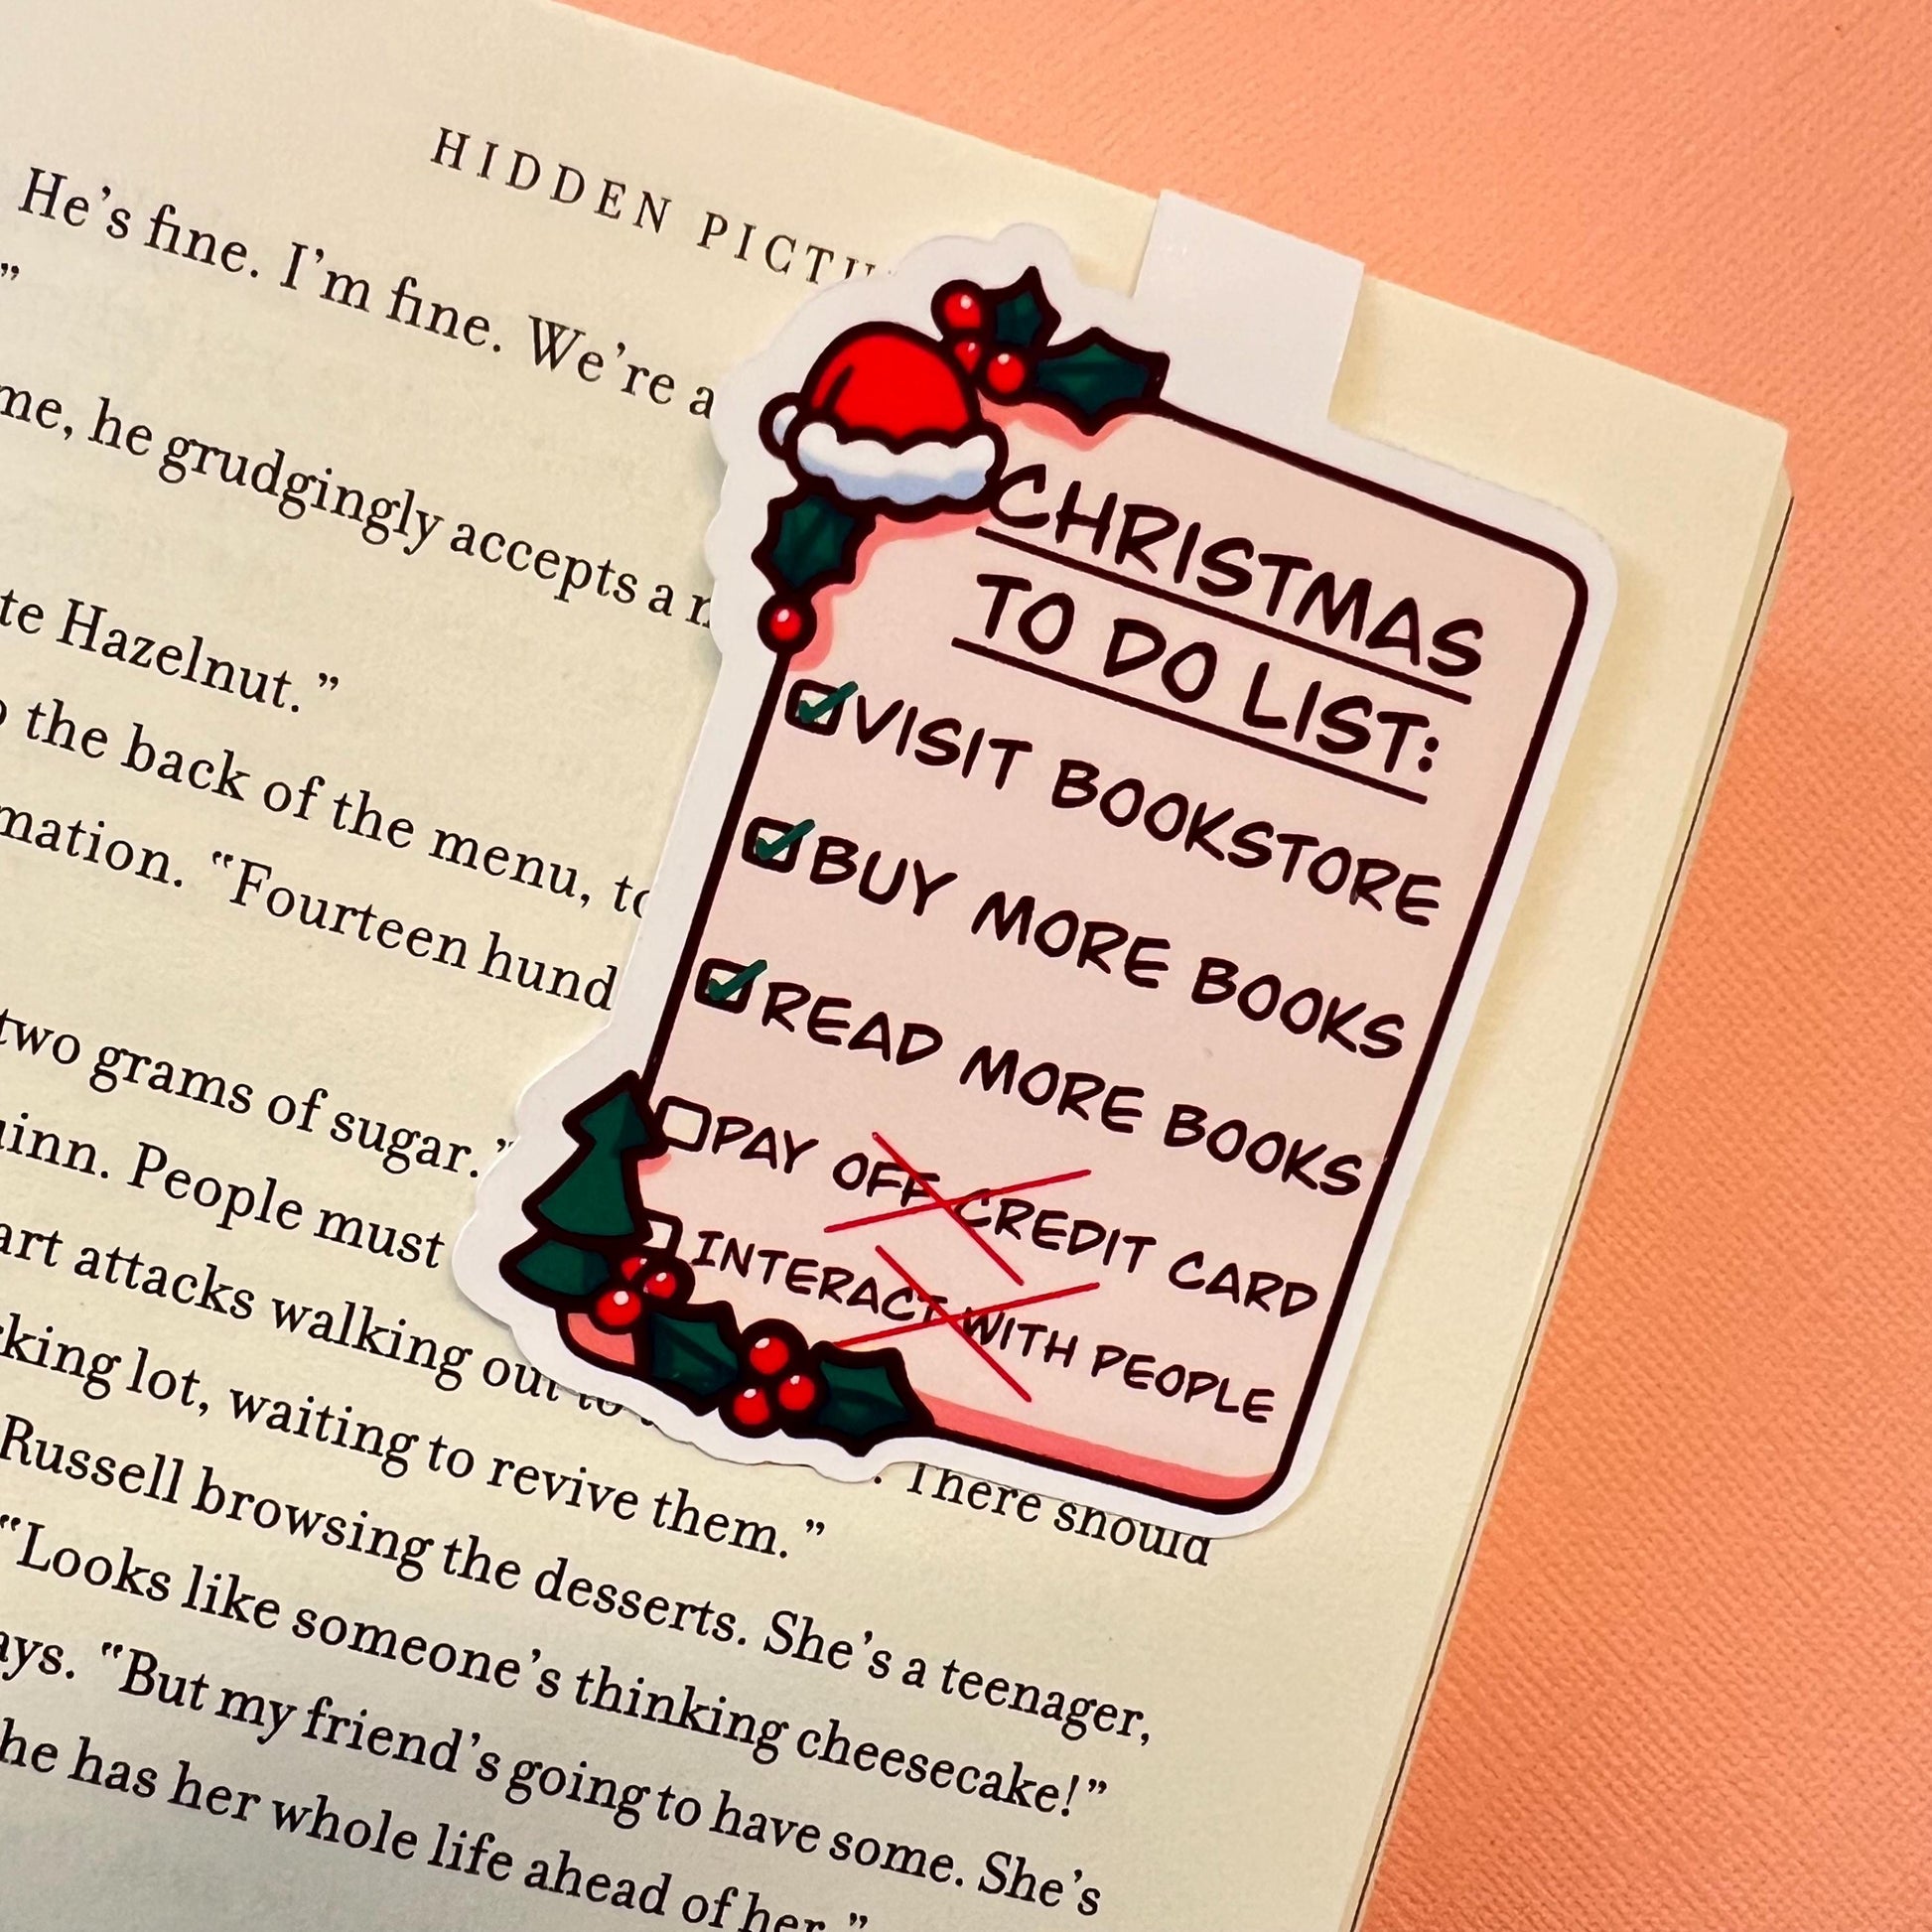 HIDDEN
He's fine. I'm fine. We're a
”
me, he grudgingly accepts a
te Hazelnut.”
the back of the menu,
mation. “Fourteen
two grams of sugar.”
uinn. People must
art attacks walking out to
king lot, waiting to revive them.” . There should
Russell browsing the desserts. She's a teenager,
“Looks like someone's thinking cheesecake!”
ays. “But my friend's going to have some. She's
he has her whole life ahead of her.”
CHRISTMAS
TO DO LIST:
VISIT BOOKSTORE
BUY MORE BOOKS
READ MORE BOOKS
PAY OFF CREDIT CARD
INTERACT WITH PEOPLE